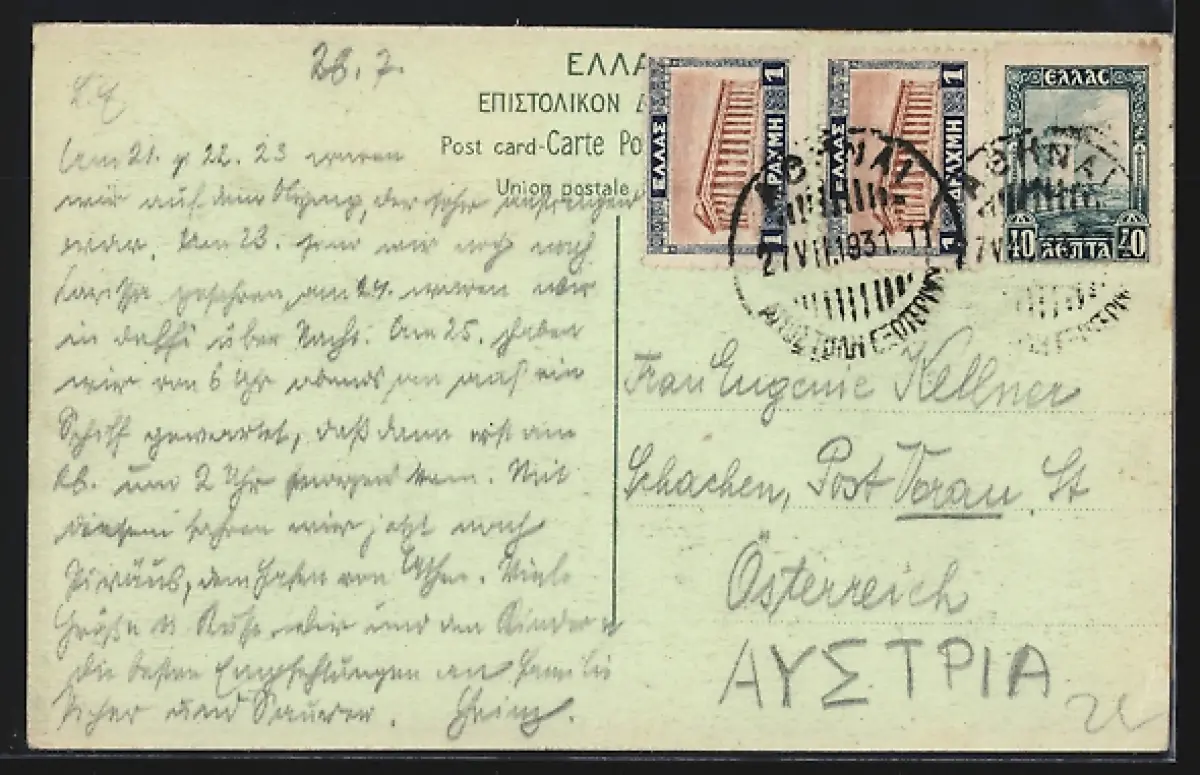 26. 7.
Am 21. 22. 23 waren
wir auf dem Olymp, der sehr anstrengend
war. Am 23. sind wir noch nach
Larissa gefahren, am 24. waren wir
in Delfi über Nacht. Am 25. haben
wir von 6 Uhr abends an auf ein
Schiff gewartet, daß dann erst am
26. um 2 Uhr morgens kam. Mit
diesem fahren wir jetzt nach
Piräus, dem Hafen von Athen. Viele
Grüße u Küsse, dir und den Kindern u
die besten Empfehlungen an Familie
und Heinz.
ΕΛΛΑ
ΕΠΙΣΤΟΛΙΚΟΝ Δ
Post card-Carte Po
Union postale
ΕΛΛΑΣ 1 ΔΡΑΧΜΗ 1
ΕΛΛΑΣ 1 ΔΡΑΧΜΗ 1
ΕΛΛΑΣ
40 ΛΕΠΤΑ 40
ΑΘΗΝΑΙ
27 VII.1931.11
ΑΘΗΝΑΙ
7 VII
Frau Eugenie Kellner
Schachen, Post Vorau St
Österreich
ΑΥΣΤΡΙΑ